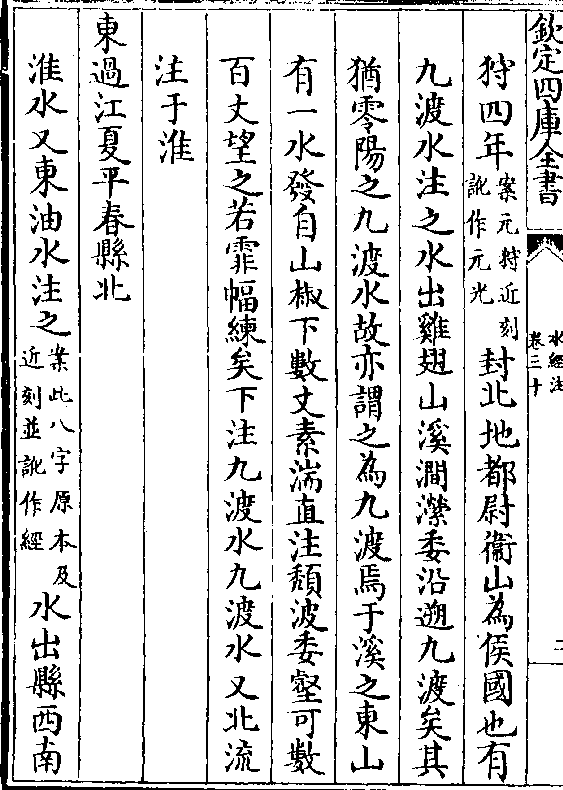 欽定四庫全書
水經注
卷三十
二
狩四年案元狩近刻訛作元光封北地都尉衞山為侯國也有
九渡水注之水出雞翅山溪澗瀠委沿遡九渡矣其
猶零陽之九渡水故亦謂之為九渡焉于溪之東山
有一水發自山椒下數丈素湍直注頽波委壑可數
百丈望之若霏幅練矣下注九渡水九渡水又北流
注于淮
東過江夏平春縣北
淮水又東油水注之案此八字原本及近刻並訛作經水出縣西南